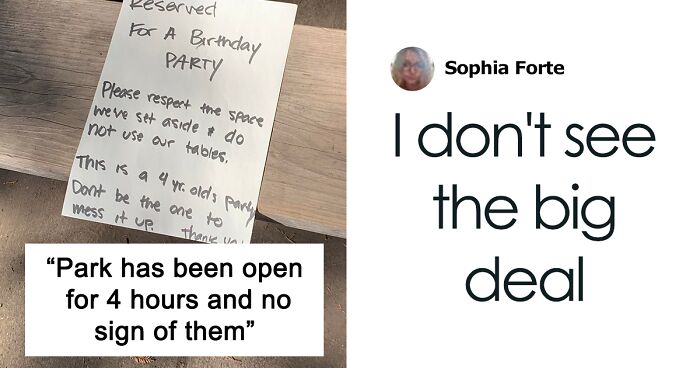 Reserved
For A Birthday
PARTY
Please respect the space
we've set aside & do
not use our tables.
This is a 4 yr. olds party
Dont be the one to
mess it up. Thank you
“Park has been open
for 4 hours and no
sign of them”
Sophia Forte
I don't see
the big
deal